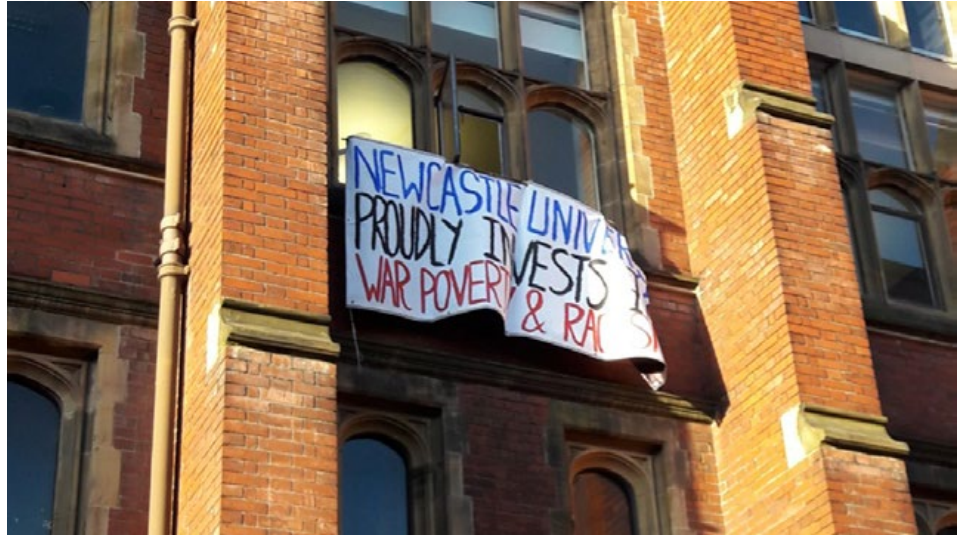 NEWCASTLE UNIVER
PROUDLY INVESTS I
WAR POVERTY & RACISM